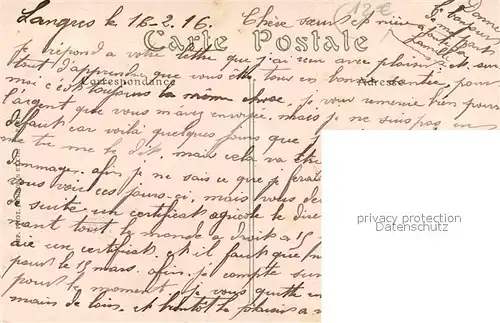 Langres le 16-2.16. Chère sœur et nièce
12€
Donne
Carte Postale
je répond a votre lettre que j'ai reçu avec plaisir et sur
tout d'apprendre que vous ete tous en bonne santée pour
Correspondance
Adresse
moi c'est toujours la même chose, je vous remercie bien pour
l'argent que vous m'avez envoyée, mais je ne suis pas en
défaut car voilà quelques jours que
me tu me le dit, mais cela va être
dommage, afin je ne sais ce que je ferais
vous voir ces jours-ci, mais vous
de suite un certificat agricole le dire
nant tout le monde a droit a 15
aie un certificat et il faut que
pour le 15 mars. afin je compte sur
pour le moment je vous quitte en
mais de loin, et bientôt le plaisir a
privacy protection
Datenschutz